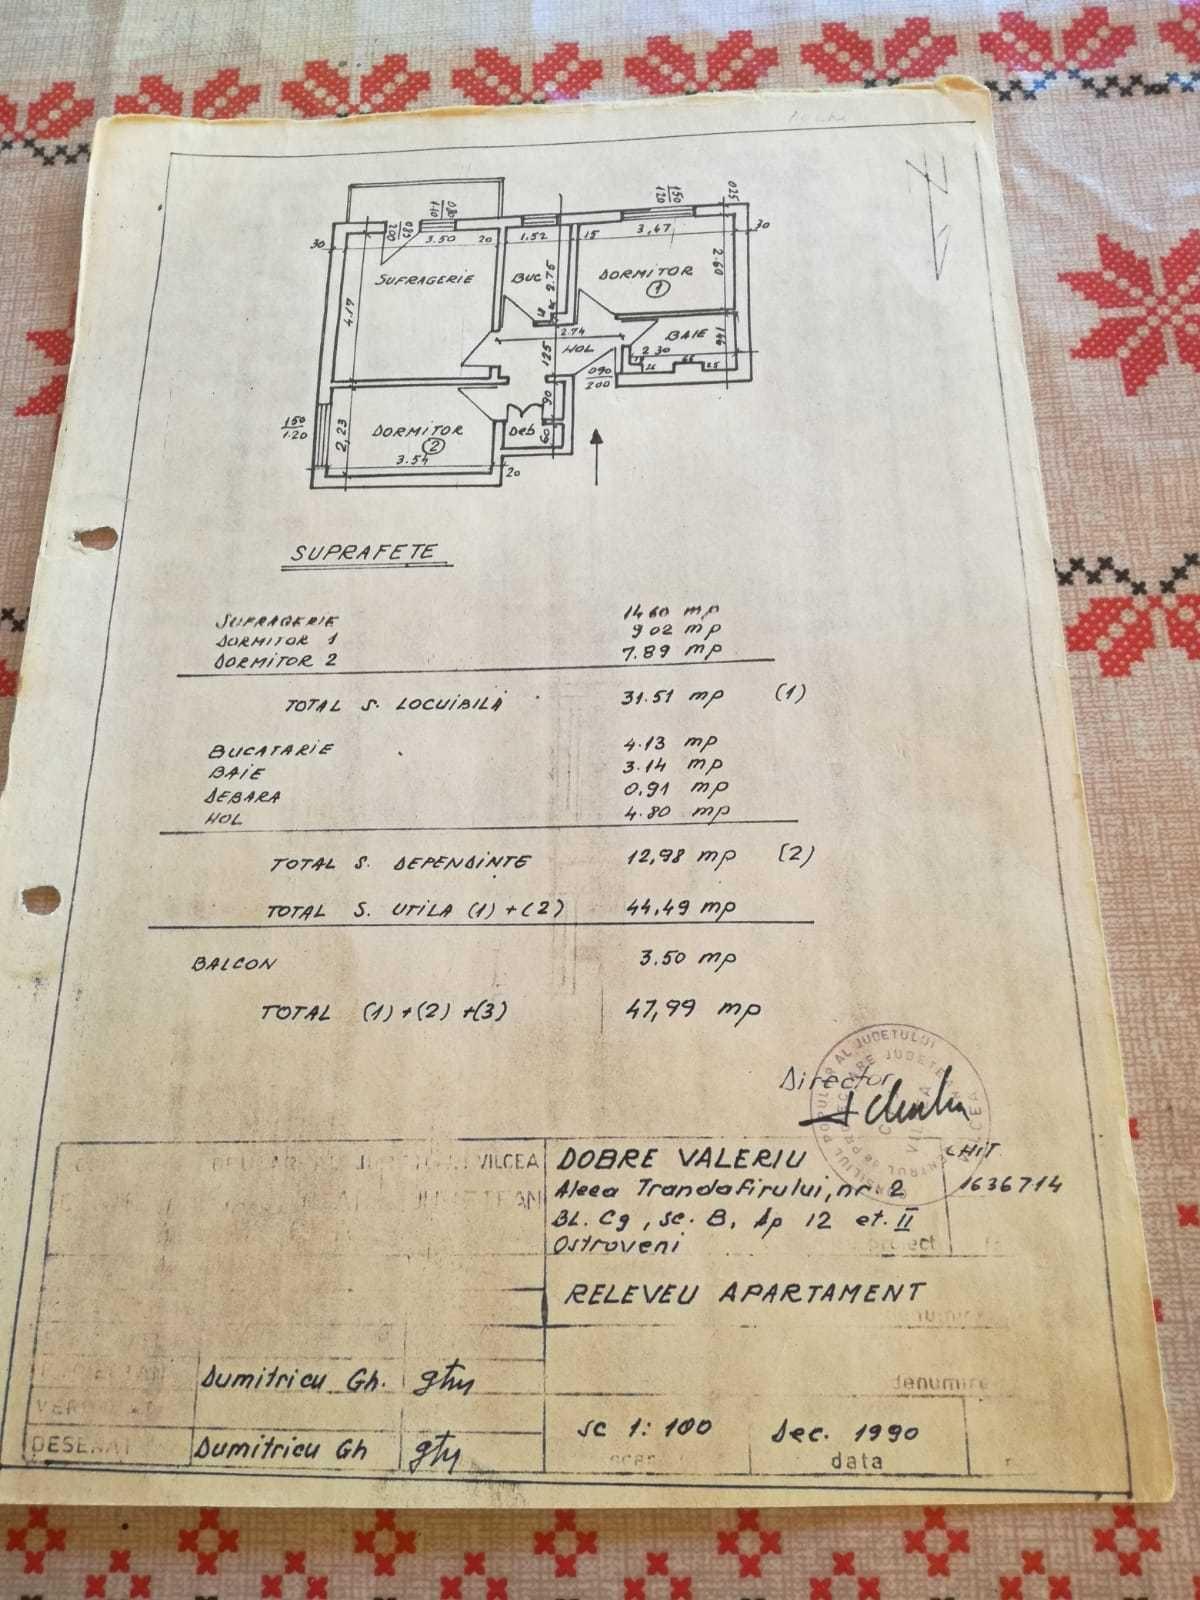 0.80
1.40
150
1.20
025
30
0.85
2.00
3.50
20
1.52
15
3,47
30
SUFRAGERIE
BUC
2.75
DORMITOR
1
2.60
4.17
2.74
HOL
125
BAIE
146
2 30
090
200
90
150
1.20
2,23
DORMITOR
2
Deb
60
3.54
20
SUPRAFEȚE
SUFRAGERIE 14.60 mp
DORMITOR 1 9 02 mp
DORMITOR 2 7.89 mp
TOTAL S. LOCUIBILĂ 31.51 mp (1)
BUCATARIE 4.13 mp
BAIE 3.14 mp
DEBARA 0,91 mp
HOL 4.80 mp
TOTAL S. DEPENDINȚE 12,98 mp (2)
TOTAL S. UTILA (1)+(2) 44,49 mp
BALCON 3.50 mp
TOTAL (1)+(2)+(3) 47,99 mp
Director
AL JUDETULUI
VILCEA
DOBRE VALERIU
CHIT
Aleea Trandafirului, nr. 2
1636714
BL. C9, sc. B, Ap 12 et. II
Ostroveni
proiect
RELEVEU APARTAMENT
denumire
Dumitricu Gh.
DESENAT Dumitricu Gh
sc 1:100
Dec. 1990
data